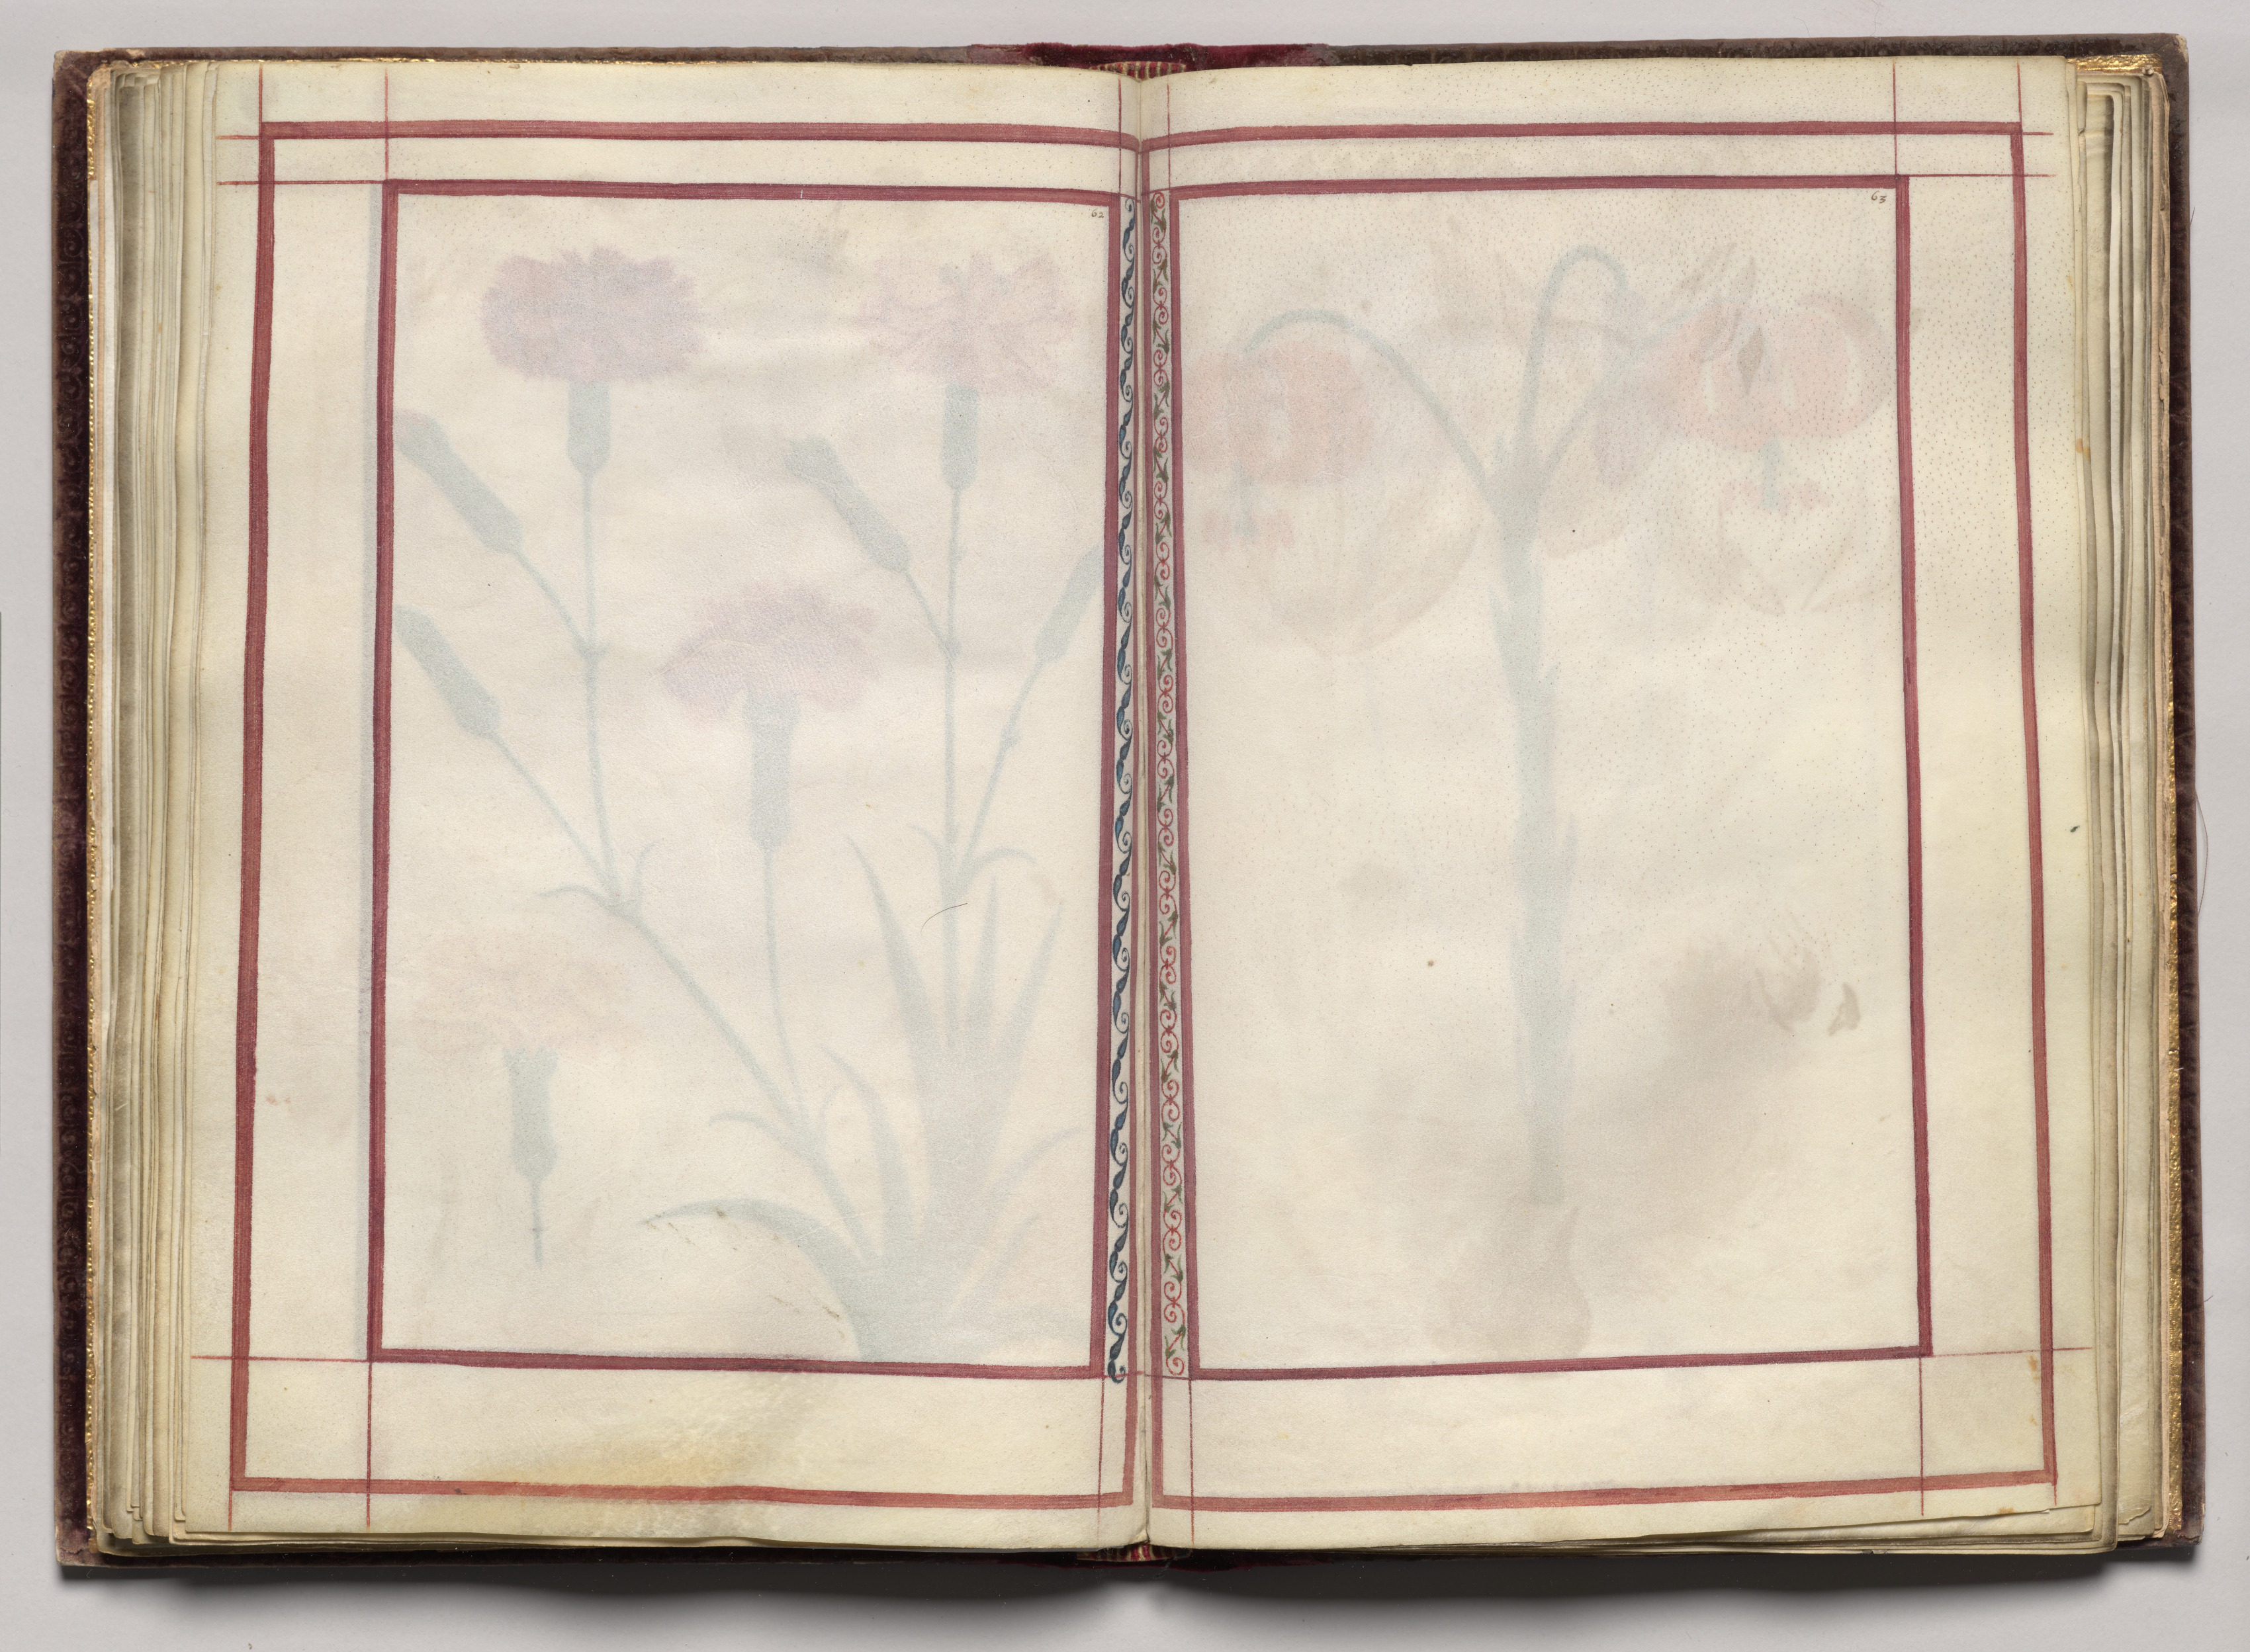 62
63